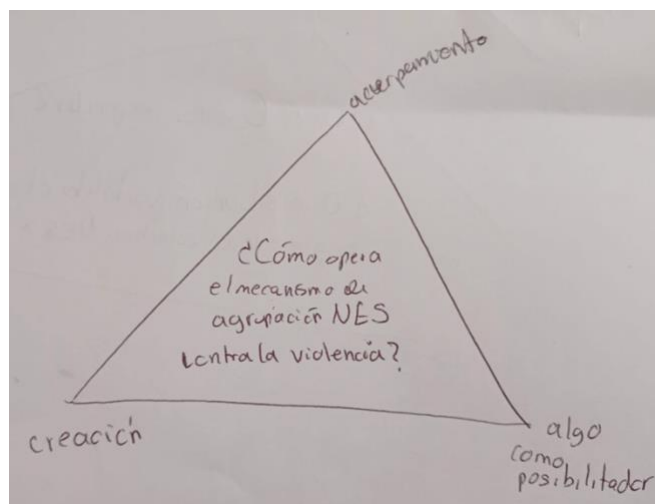 acuerpamiento
¿Cómo opera
el mecanismo de
agrupación NES
contra la violencia?
creación
algo
como
posibilitador